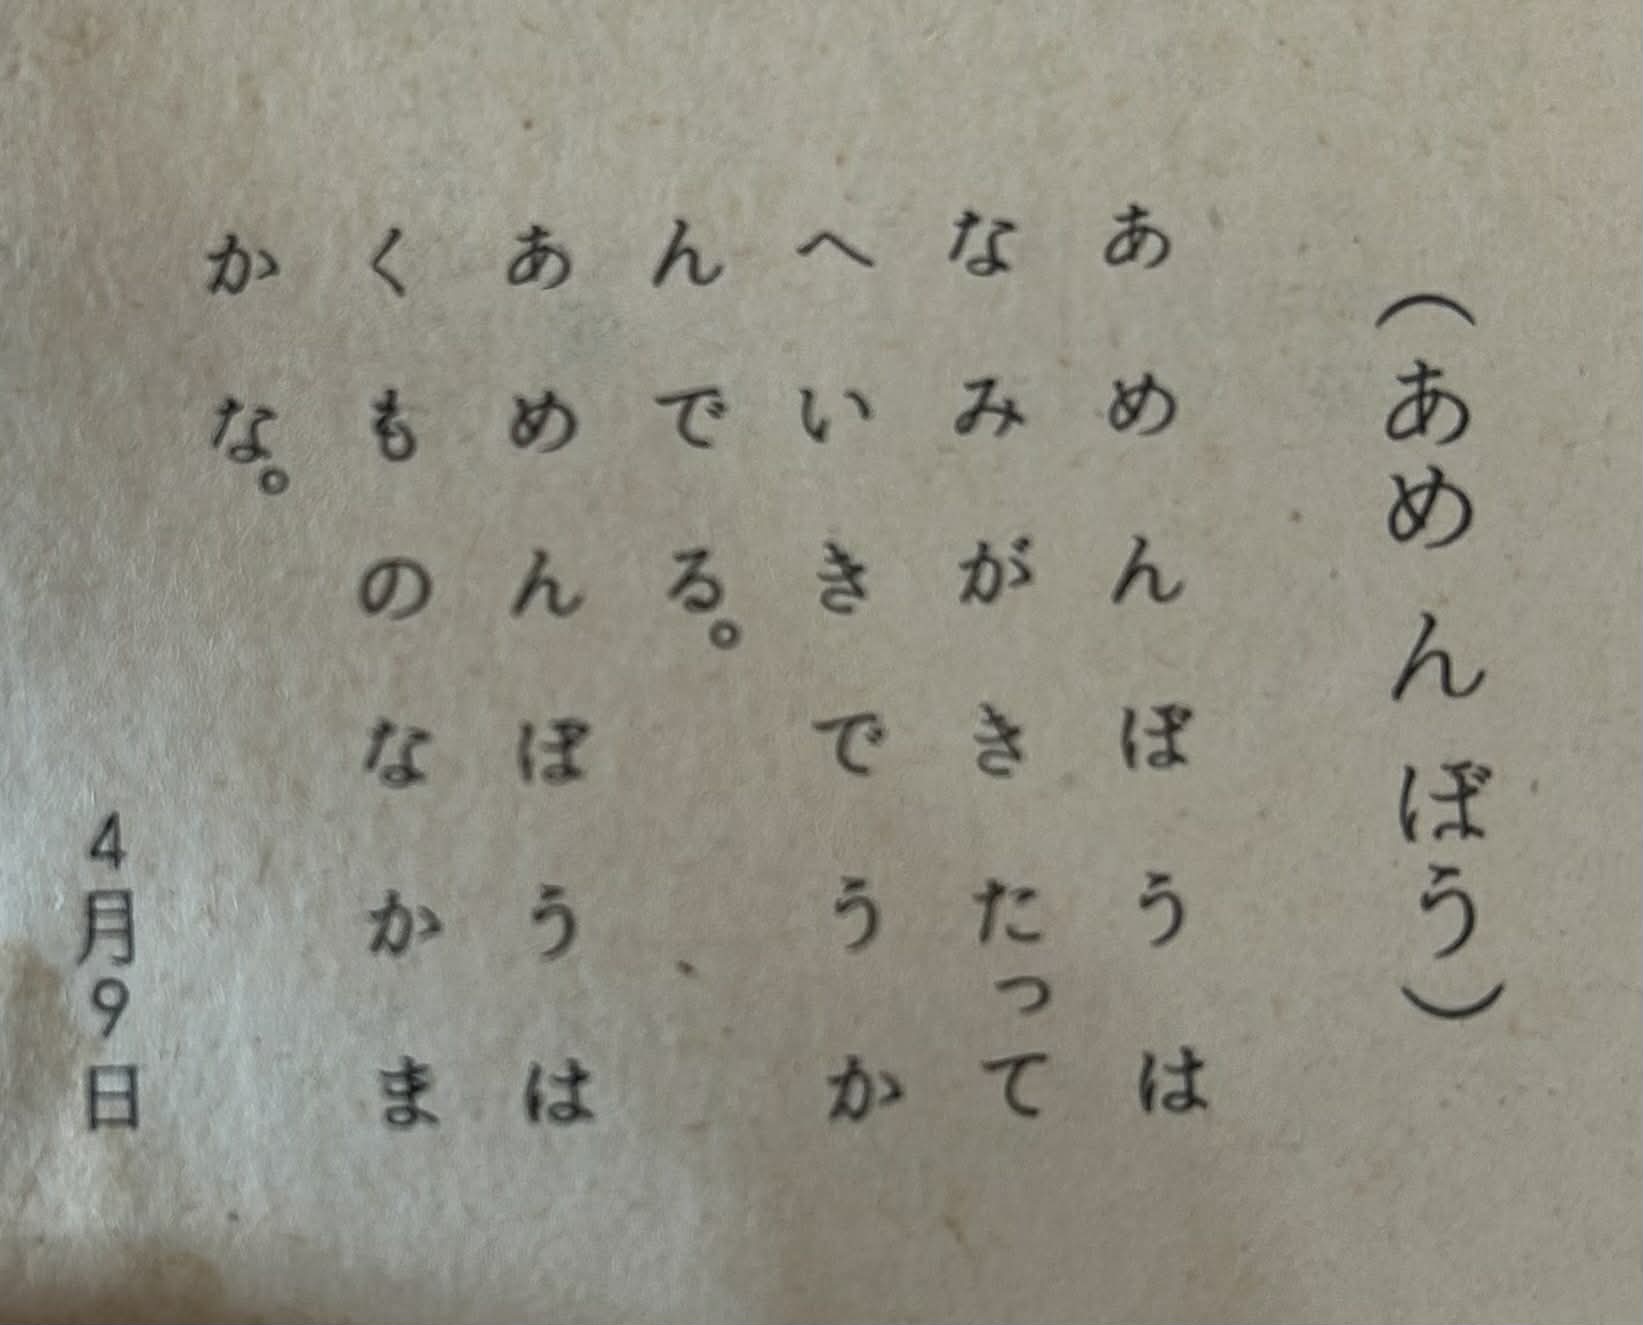 （あめんぼう）
あめんぼうは
なみがきたって
へいきでうか
んでる。
あめんぼうは
くものなかま
かな。
4月9日